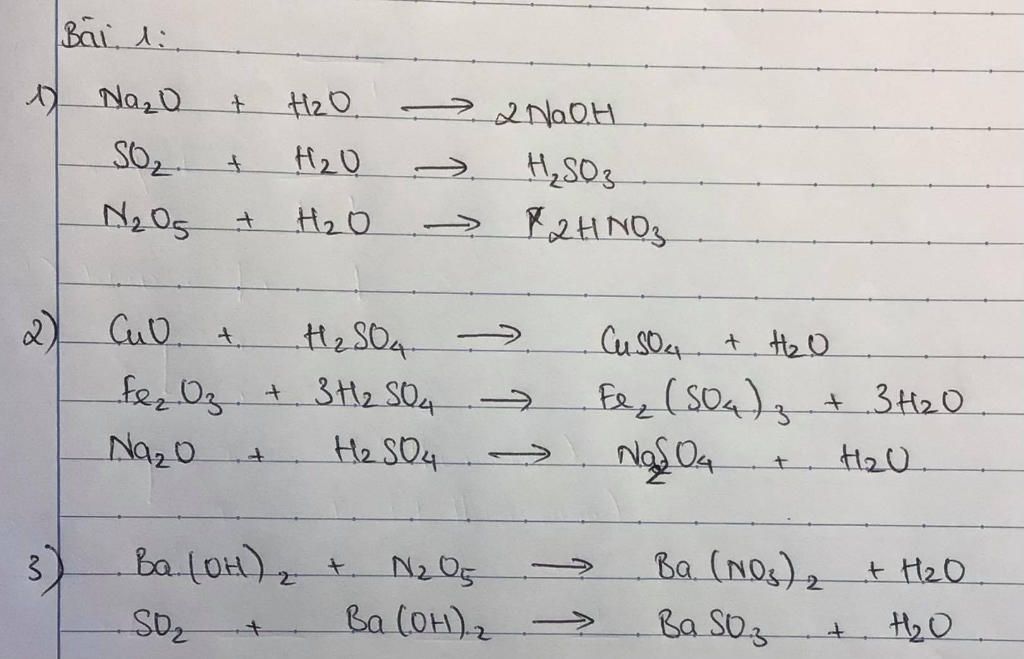 Bài 1:
1) Na₂O + H₂O → 2NaOH
SO₂ + H₂O → H₂SO₃
N₂O₅ + H₂O → 2HNO₃
2) CuO + H₂SO₄ → CuSO₄ + H₂O
Fe₂O₃ + 3H₂SO₄ → Fe₂(SO₄)₃ + 3H₂O
Na₂O + H₂SO₄ → Na₂SO₄ + H₂O
3) Ba(OH)₂ + N₂O₅ → Ba(NO₃)₂ + H₂O
SO₂ + Ba(OH)₂ → BaSO₃ + H₂O